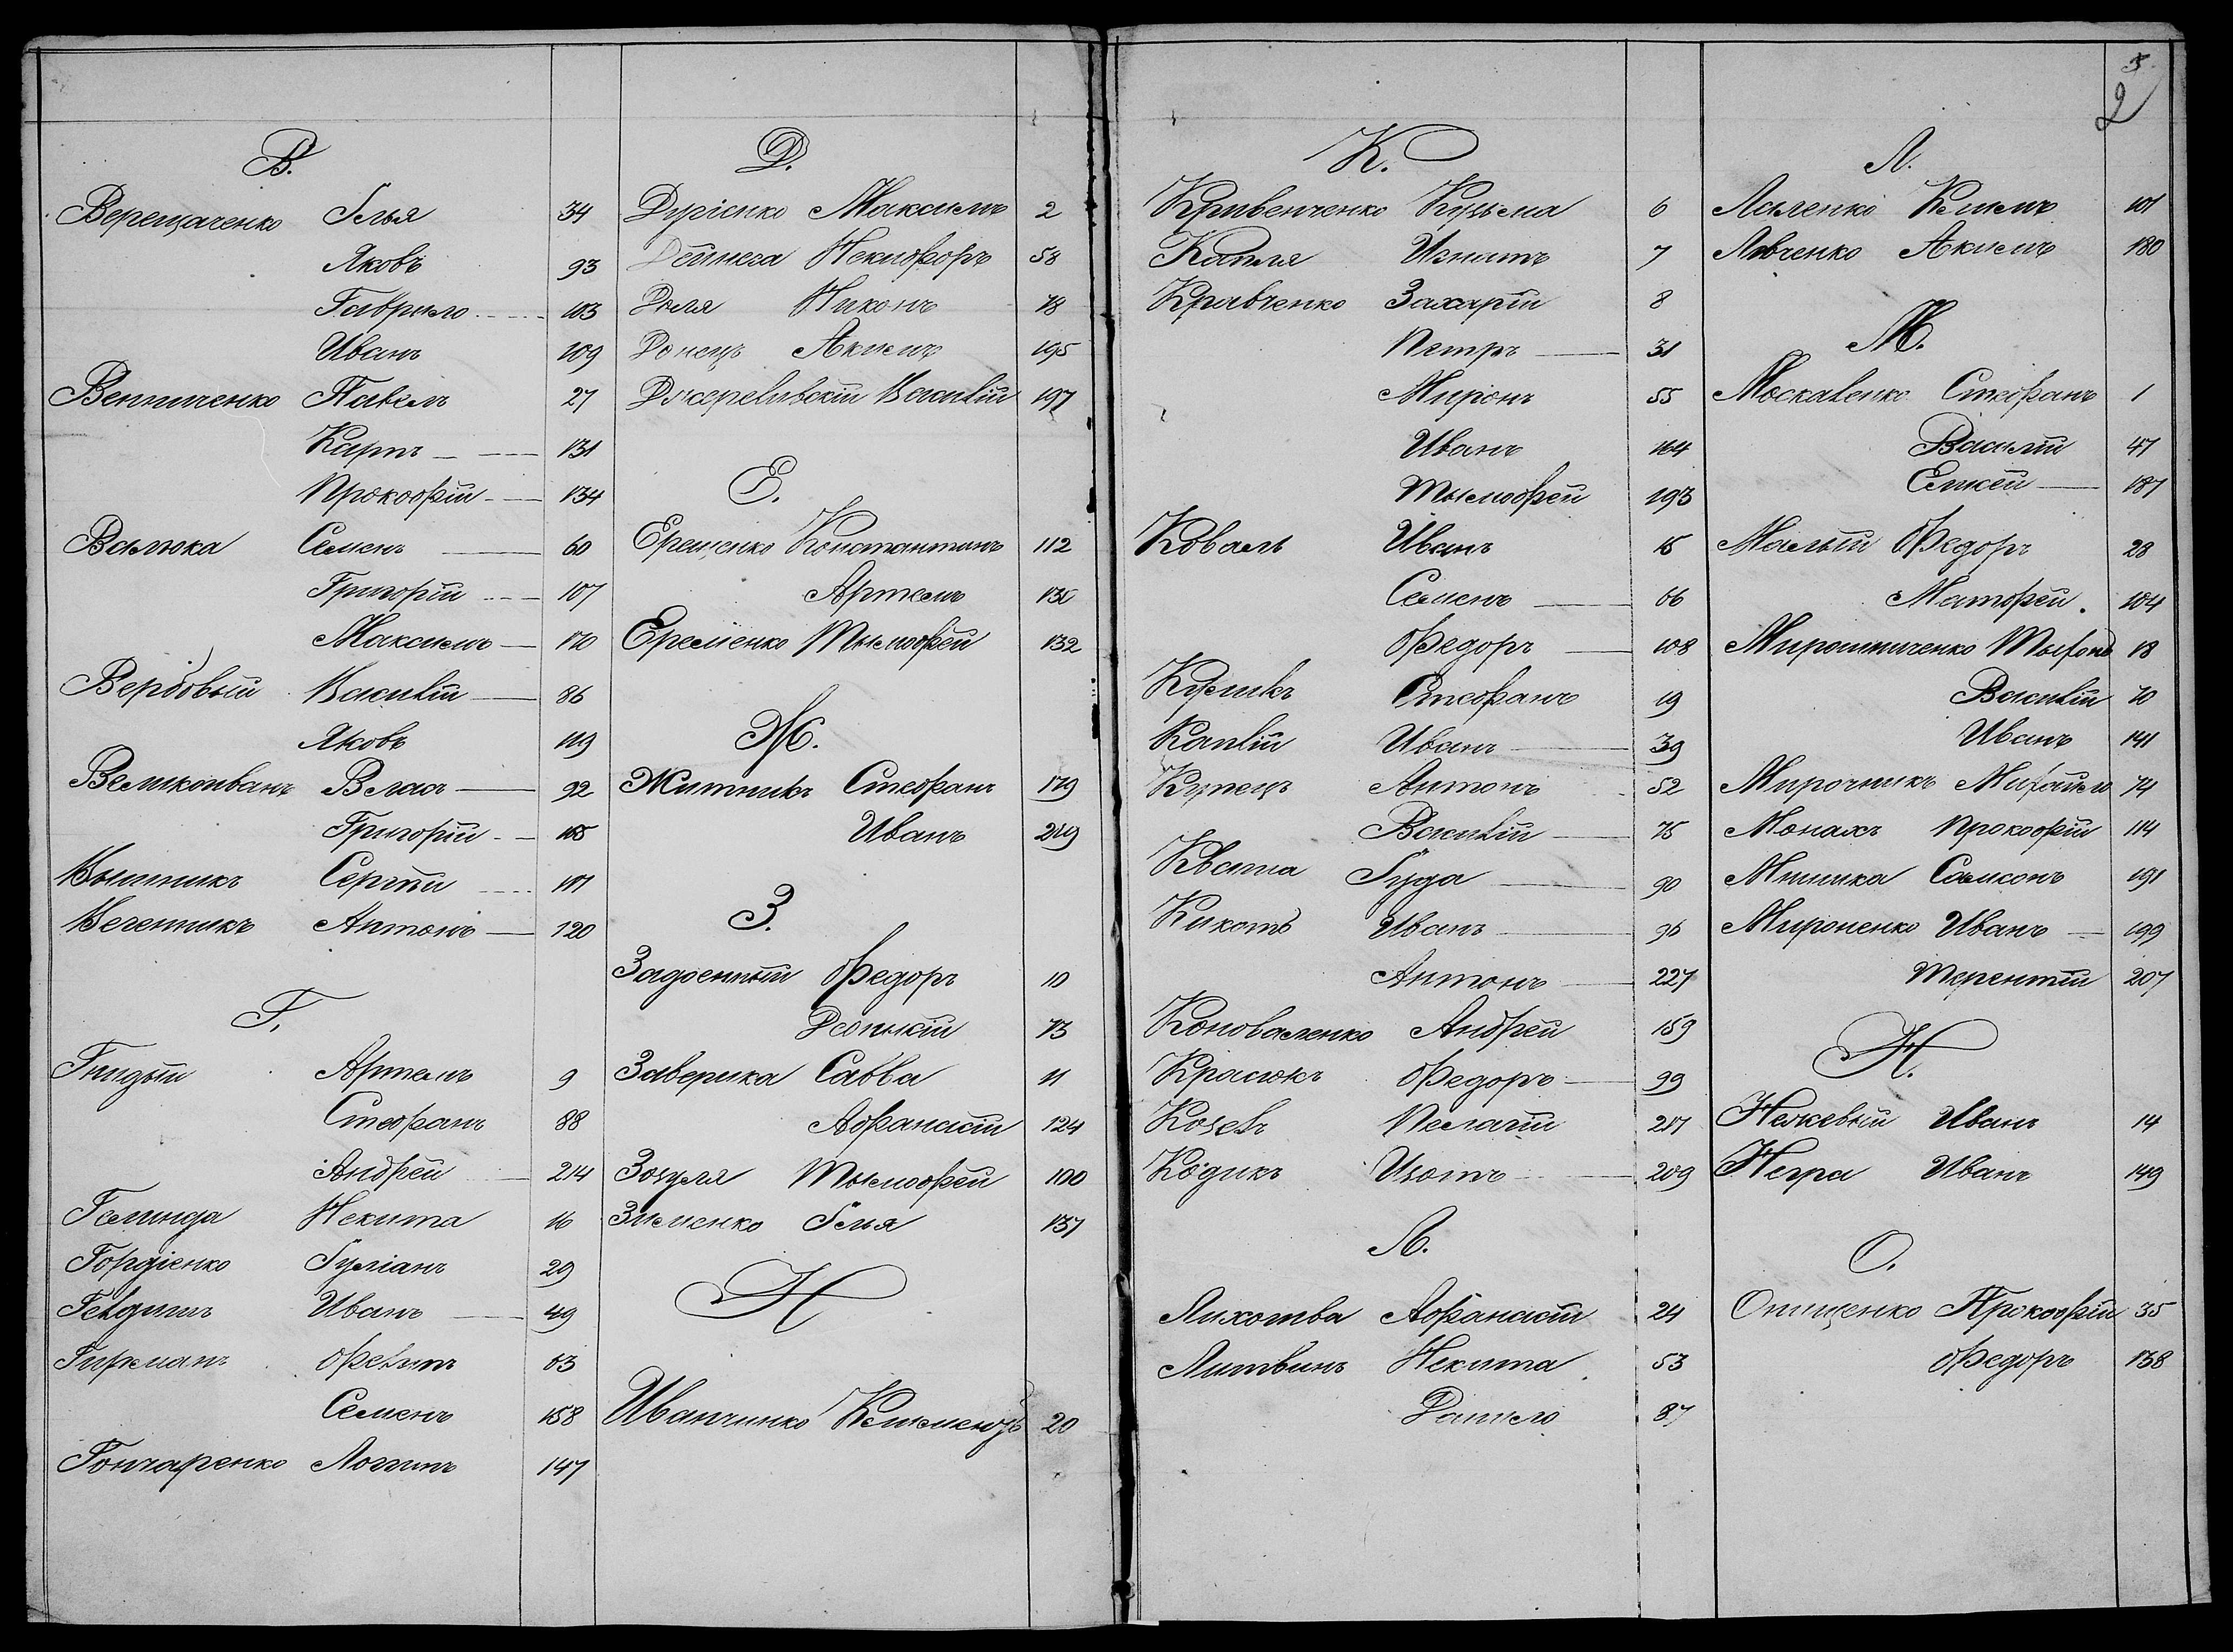 В.
Верещаченко Илья 34
Яковъ 93
Гаврило 103
Иванъ 109
Павелъ 27
Карпъ 131
Прокофій 134
Валюка Семенъ 60
Григорій 107
Максимъ 170
Вербовый Василій 86
Яковъ 119
Великоиванъ Власъ 92
Григорій
Сергѣй 101
Антонъ 120
Г.
Гнидый Артемъ 9
Стефанъ 88
Андрей 214
Галинда Некита 16
Гордіенко Іуліанъ 29
Иванъ 49
63
Семенъ 158
Гончаренко Логинъ 147
Д.
Максимъ 2
Дейнега Некифоръ 58
Доля Никонъ 78
Донецъ Акимъ 195
Джереливскій Василій 197
Е.
Ерещенко Константинъ 112
Артемъ 130
Еременко Тымофей 132
Ж.
Житникъ Стефанъ 179
Иванъ 219
З.
Задоенный Федоръ 10
13
Заверика Савва 11
Афанасій 124
Зозуля Тымофей 100
Зименко Илья 137
И
Иванчинко Климентъ 20
3
2
К.
Кривенченко Кузьма 6
Капля Игнатъ 7
Кравченко Захарій 8
Петръ 31
Миронъ 55
Иванъ 164
Тымофей 193
Коваль Иванъ 15
Семенъ 66
Федоръ 108
Стефанъ 19
Каплій Иванъ 39
Купецъ Антонъ 52
Василій 75
Кваша Іуда 90
Кикоть Иванъ 96
Антонъ 227
Коноваленко Андрей 159
Красюкъ Федоръ 99
Козелъ Пелагій 217
Кодикъ Изотъ 209
Л.
Лихотва Афанасій 24
Литвинъ Некита 53
Данило 87
Л.
Ляленко Климъ 101
Левченко Акимъ 180
М.
Москаленко Стефанъ 1
Василій 47
Елисей 187
Малый Федоръ 28
Матфей 104
Мирошниченко Тыхонъ 18
Василій 70
Иванъ 141
Мирочникъ Михайло 74
Монахъ Прокофій 114
Мишика Самсонъ 191
Мироненко Иванъ 199
Терентій 207
Н.
Нежевый Иванъ 14
Негра Иванъ 149
О.
Онищенко Прокофій 35
Федоръ 138